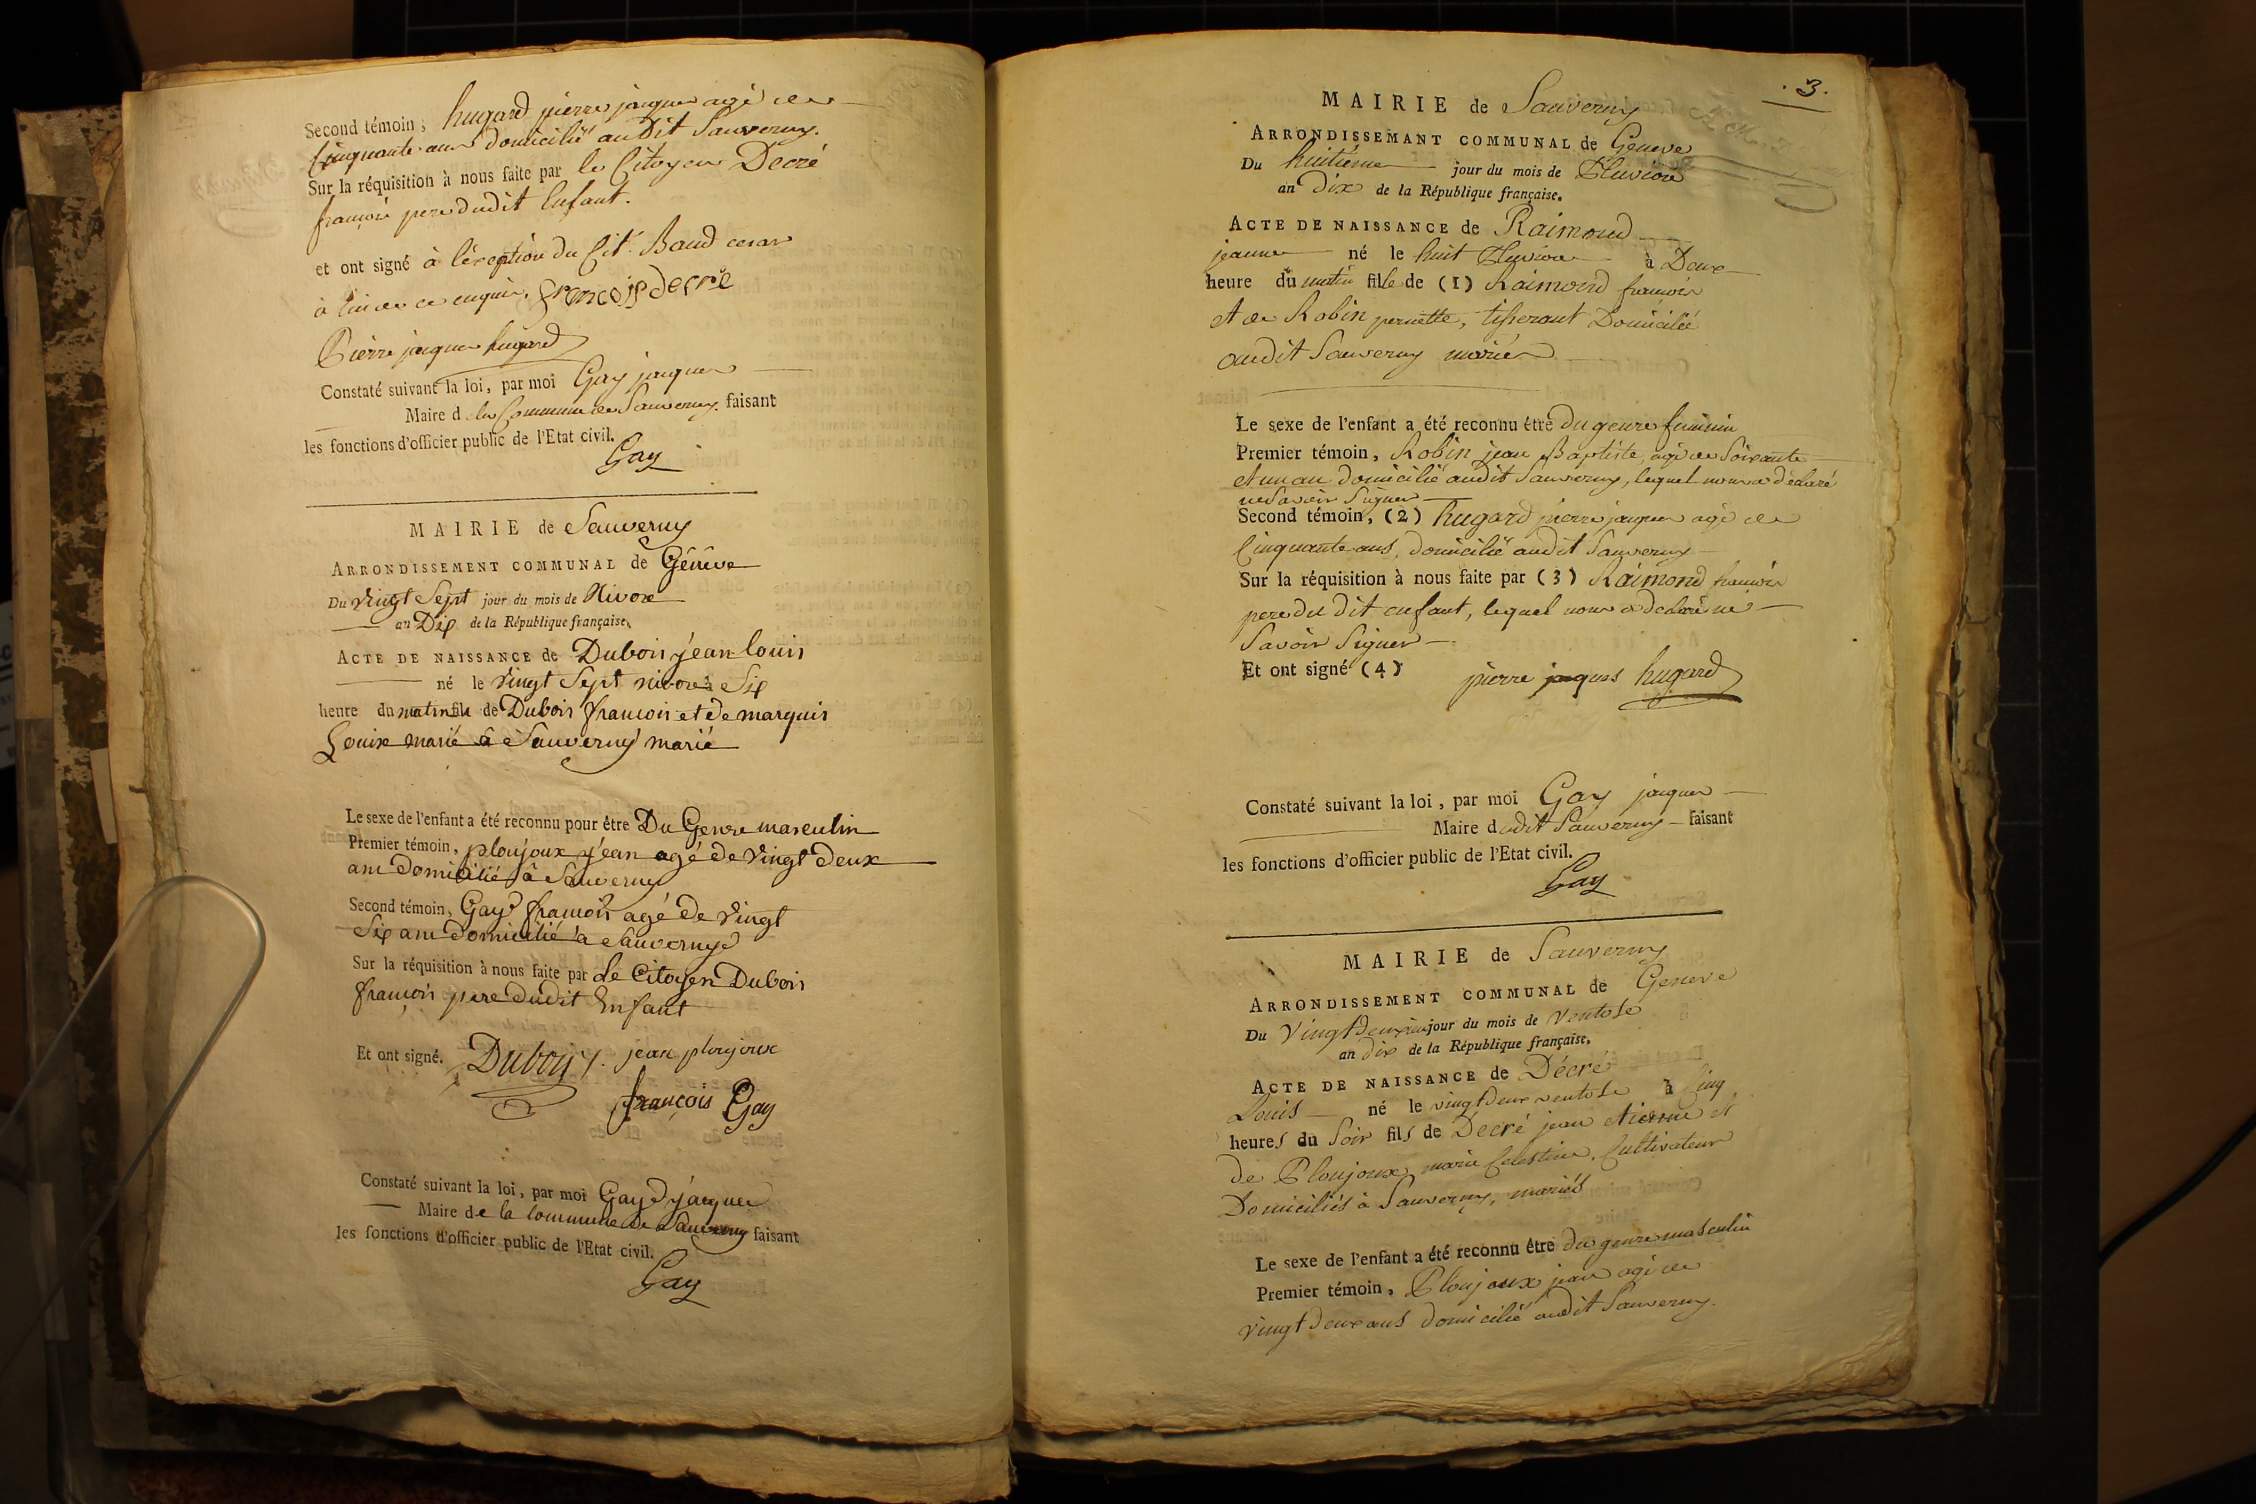 Second témoin, hugard pierre jaques agé de
Cinquante ans domicilié audit Sauverny.
Sur la réquisition à nous faite par le Citoyen Decré
françois pere dudit Enfant.
et ont signé à léxception du Cit. Baud
à ce enquis. francois decré
Pierre jaques hugard
Constaté suivant la loi, par moi Gay jaques
Maire d la Commune de Sauverny faisant
les fonctions d'officier public de l'Etat civil.
Gay
MAIRIE de Sauverny
ARRONDISSEMENT COMMUNAL de Génève
Du Vingt Sept jour du mois de Nivose
an Dix de la République française.
ACTE DE NAISSANCE de Dubois jean louis
né le Vingt Sept nivose à Six
heure du matin fils de Dubois francois et de marquis
Louise marié à Sauverny marié
Le sexe de l'enfant a été reconnu pour être Du Genre masculin
Premier témoin, ploujoux jean agé de Vingt deux
ans domicilié à Sauverny
Second témoin, Gay françois agé de Vingt
Six ans domicilié à Sauverny
Sur la réquisition à nous faite par Le Citoyen Dubois
françois pere dudit Enfant
Et ont signé. Dubois jean ploujoux
françois Gay
Constaté suivant la loi, par moi Gay jaques
Maire de la commune de Sauverny faisant
les fonctions d'officier public de l'Etat civil.
Gay
. 3 .
MAIRIE de Sauverny
ARRONDISSEMANT COMMUNAL de Geneve
Du huitiéme jour du mois de Pluviose
an Dix de la République française.
ACTE DE NAISSANCE de Raimond
jeanne né le huit Pluviose à Deux
heure du matin fille de (1) Raimond francois
et de Robin pernette, tisserant Domicilié
audit Sauverny mariés
Le sexe de l'enfant a été reconnu être du genre feminin
Premier témoin, Robin jean Baptiste, agé de Soixante
et un an domicilié audit Sauverny, lequel nous a déclaré
ne Savoir Signer
Second témoin, (2) hugard pierre jaques agé de
Cinquante ans, domicilié audit Sauverny
Sur la réquisition à nous faite par (3) Raimond francois
pere du dit enfant, lequel nous a declaré ne
Savoir Signer
Et ont signé (4) pierre jaques hugard
Constaté suivant la loi, par moi Gay jaques
Maire dudit Sauverny faisant
les fonctions d'officier public de l'Etat civil.
Gay
MAIRIE de Sauverny
ARRONDISSEMENT COMMUNAL de Geneve
Du Vingt deuxieme jour du mois de Ventose
an dix de la République française.
ACTE DE NAISSANCE de Décré
Louis né le vingt deux ventose à Cinq
heures du Soir fils de Decré jean etienne et
de Ploujoux marie Celestine, Cultivateur
Domiciliés à Sauverny, mariés
Le sexe de l'enfant a été reconnu être du genre masculin
Premier témoin, Ploujoux jean agé de
vingt deux ans domicilié audit Sauverny.